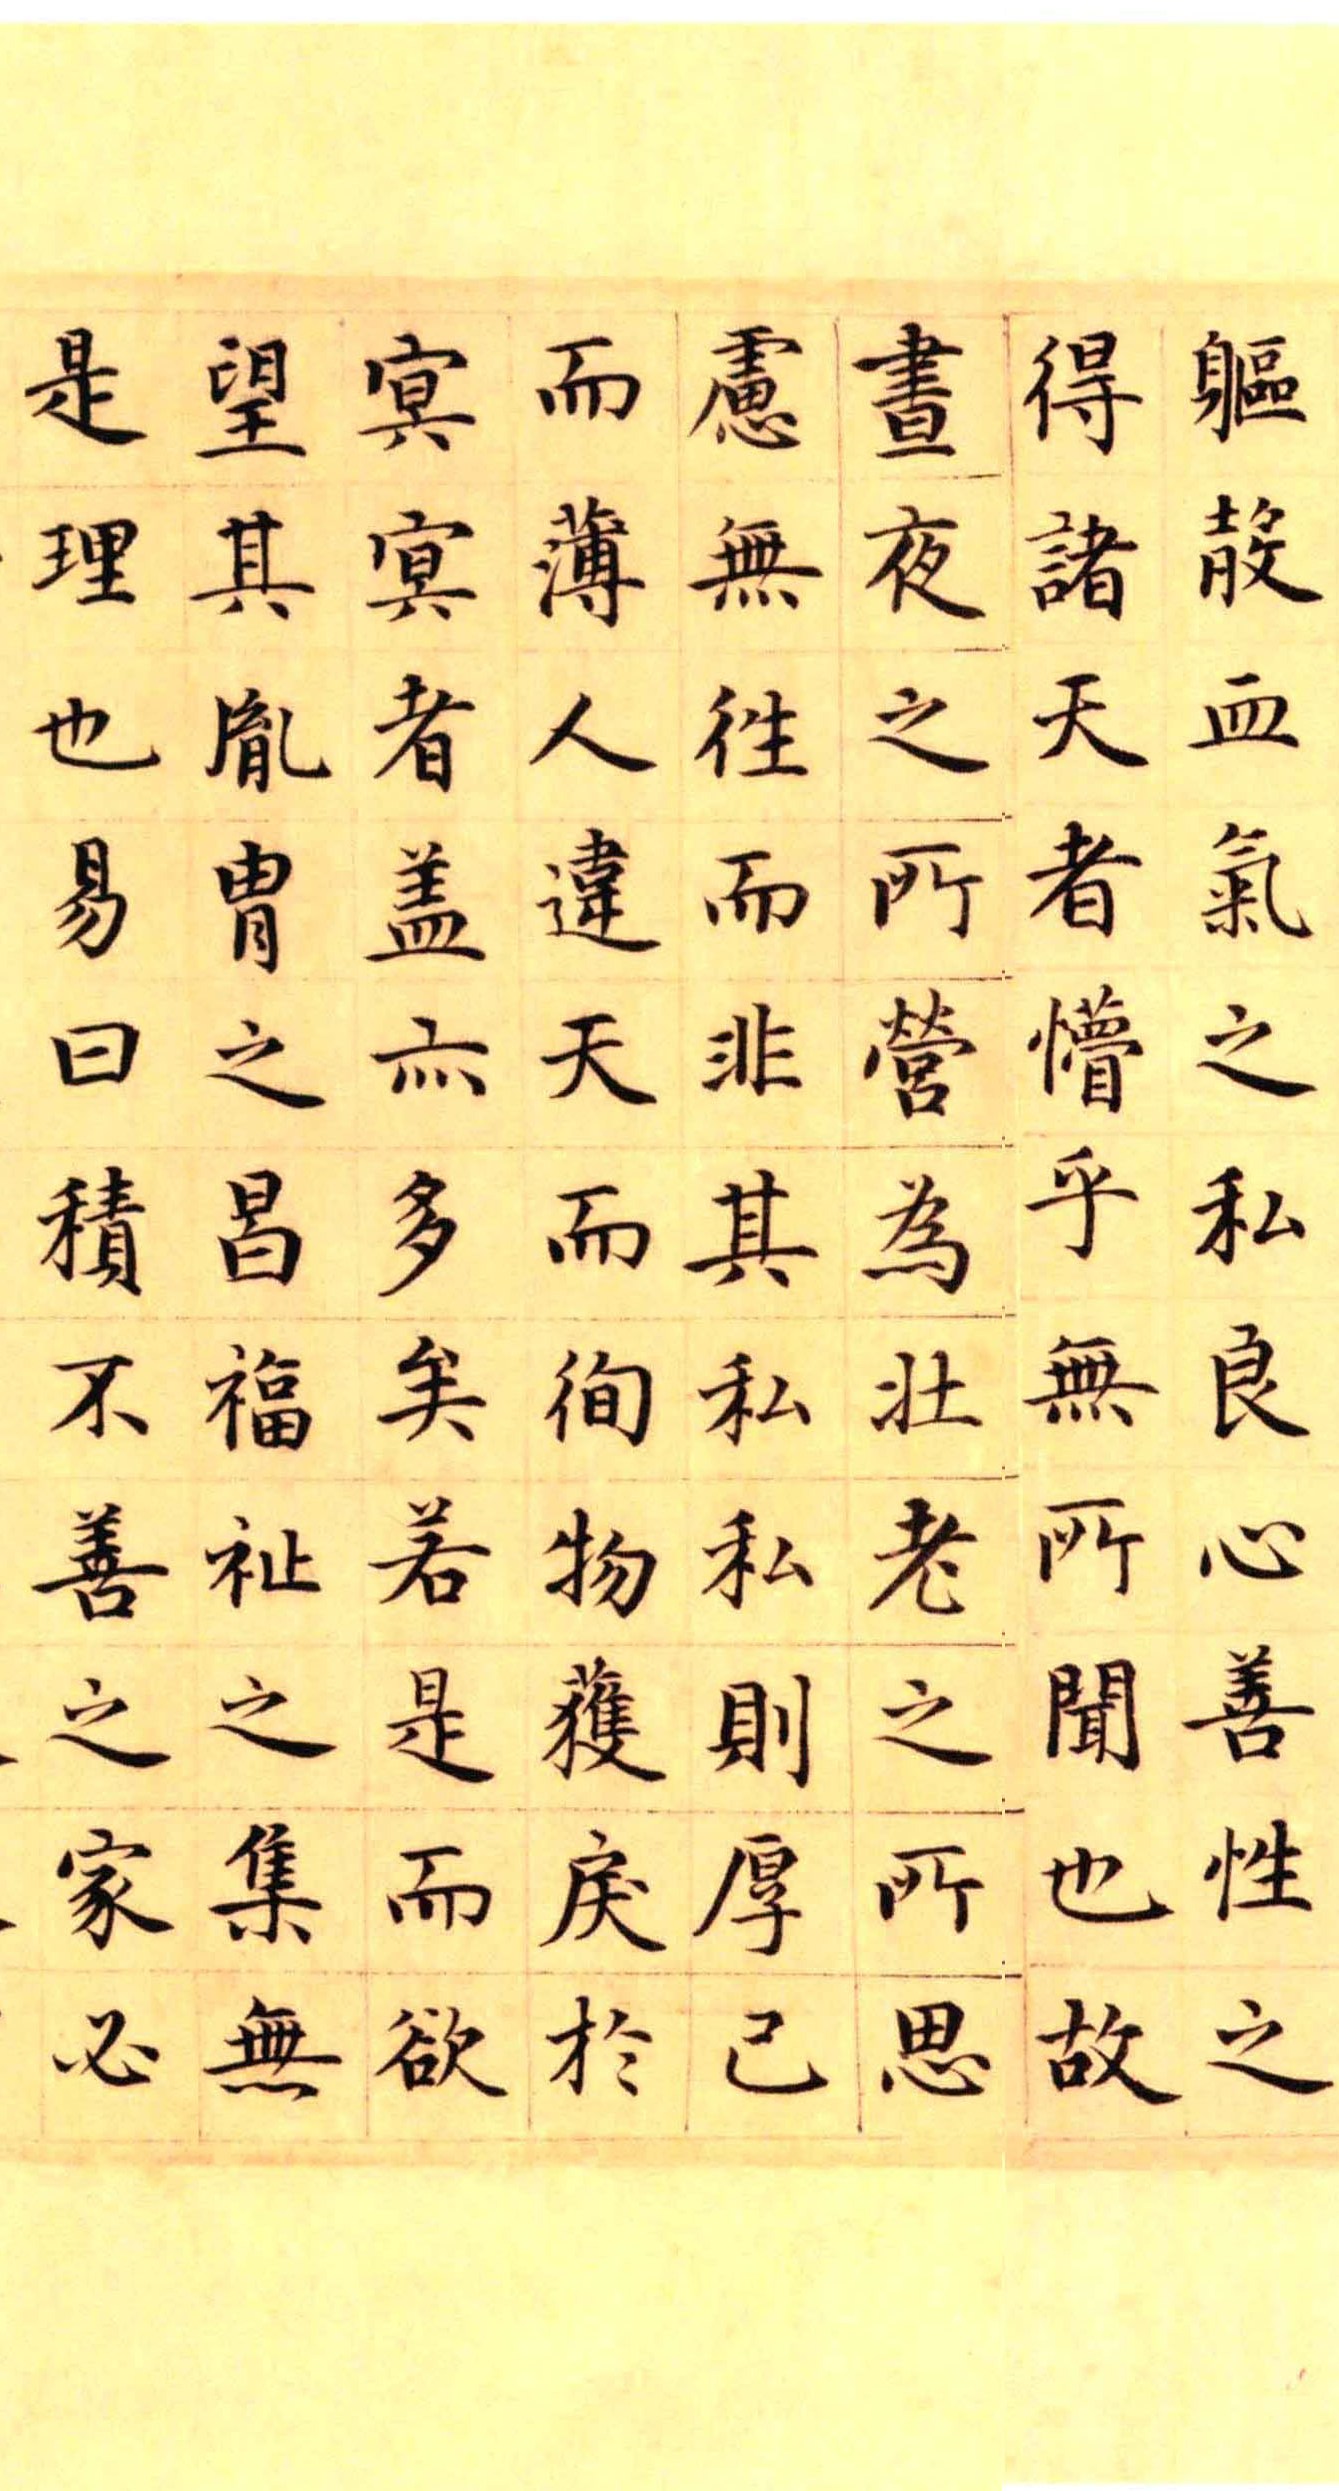 軀殼血氣之私良心善性之
得諸天者懵乎無所聞也故
晝夜之所營為壯老之所思
慮無往而非其私私則厚己
而薄人違天而徇物獲戾於
冥冥者盖亦多矣若是而欲
望其胤胄之昌福祉之集無
是理也易曰積不善之家必